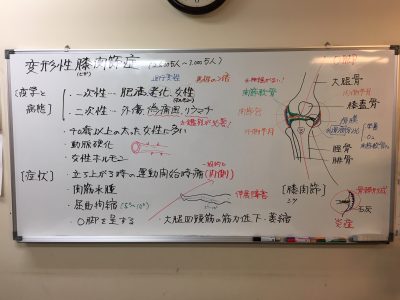 変形性膝関節症 (2,500万人~3,000万人)
(ヒザ)
進行予防
男性の2倍
[疫学と病態]
・一次性… 肥満、老化、女性
・二次性… 外傷、痛風、リウマチ
※鑑別が必要!
・40歳以上の太った女性に多い
・動脈硬化
・女性ホルモン
[症状]
・立ち上がる時の運動開始時痛(内側)
・関節水腫
・屈曲拘縮
・O脚を呈する
・大腿四頭筋の筋力低下・萎縮
伸展障害
関節軟骨
大腿骨
膝蓋骨
滑膜
脛骨
腓骨
[膝関節]
骨棘形成
炎症